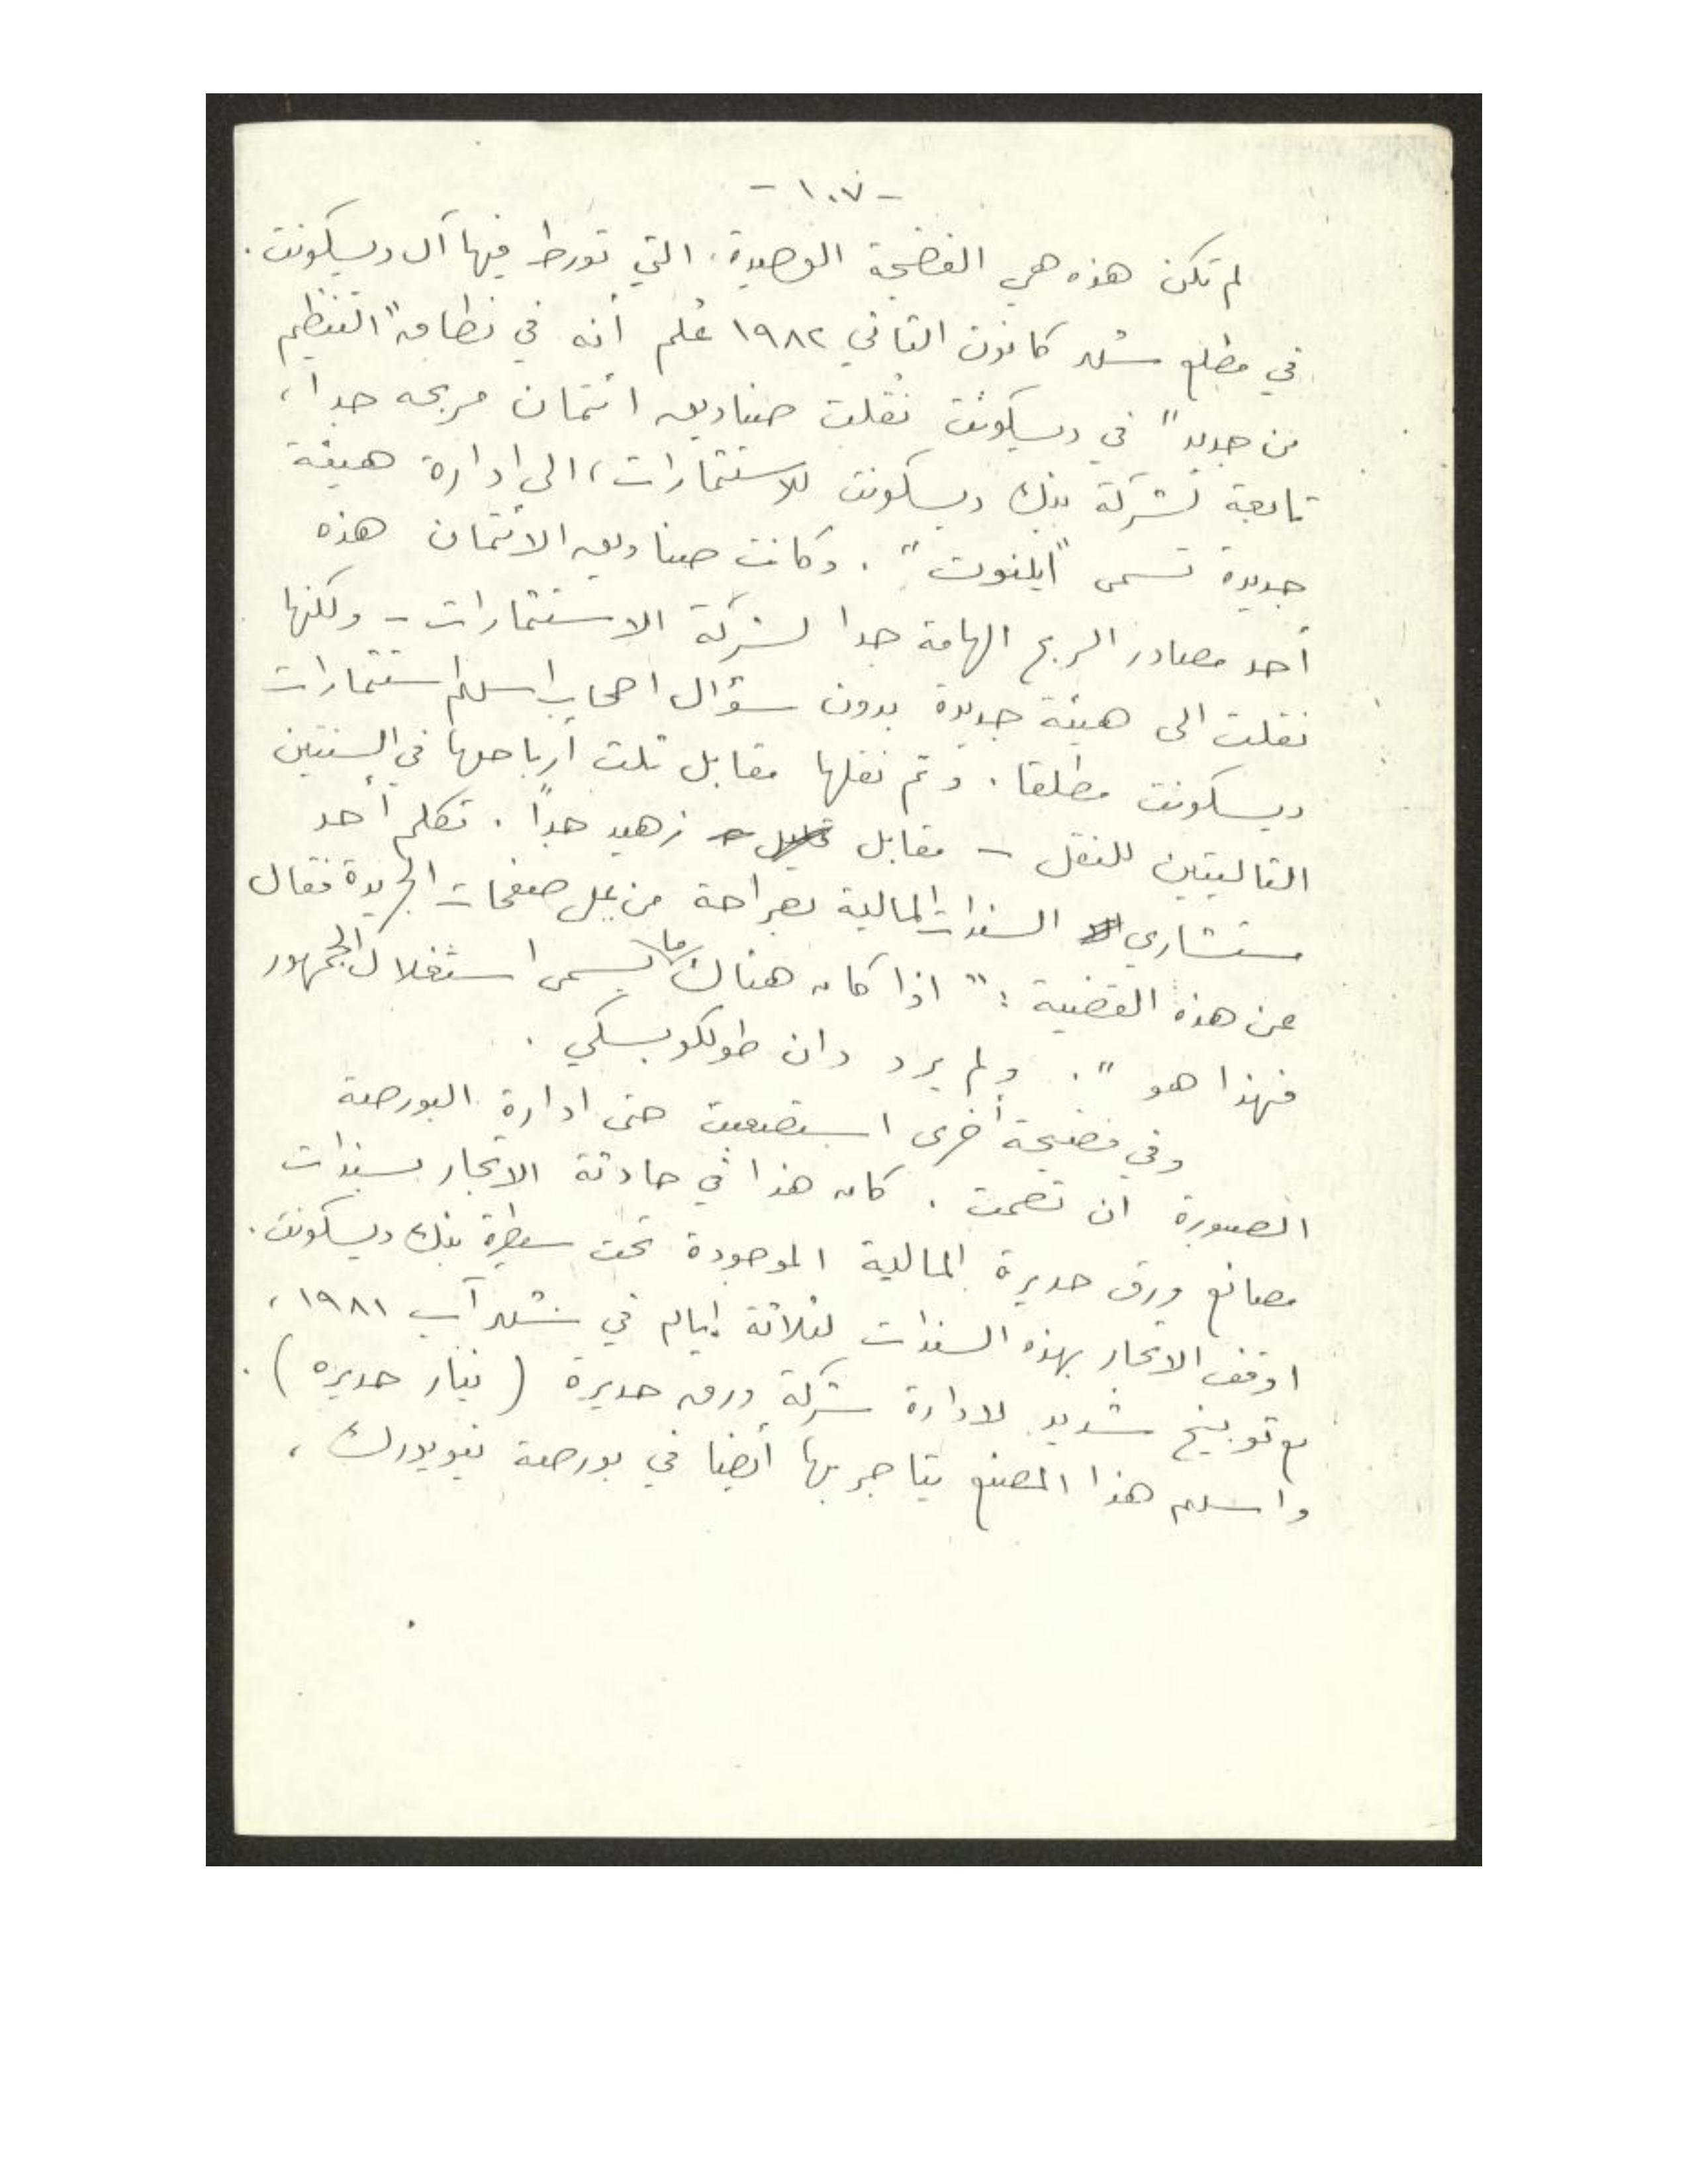 - ١٠٧ -
لم تكن هذه هي الفضيحة الوحيدة، التي تورط فيها آل ديسكونت.
في مطلع شهر كانون الثاني ١٩٨٢ عُلم أنه في نطاق "التنظيم
من جديد" في ديسكونت نُقلت صناديق ائتمان مربحه جداً،
تابعة لشركة بنك ديسكونت للاستثمارات، الى ادارة هيئة
جديدة تسمى "ايلنوت". وكانت صناديق الأئتمان هذه
أحد مصادر الربح الهامة جدا لشركة الاستثمارات - ولكنها
نقلت الى هيئة جديدة بدون سؤال اصحاب اسهم استثمارات
ديسكونت مطلقا. وتم نقلها مقابل ثلث أرباحها في السنتين
التاليتين للنقل - مقابل زهيد جداً. تكلم أحد
مستشاري السندات المالية بصراحة من على صفحات الجريدة فقال
عن هذه القضية: "اذا كان هناك ما يسمى استغلال الجمهور
فهذا هو". ولم يرد دان طولكوبسكي.
وفي فضيحة أخرى استصعبت حتى ادارة البورصة
الصبورة ان تصمت. كان هذا في حادثة الاتجار بسندات
مصانع ورق حديرة المالية الموجودة تحت سيطرة بنك ديسكونت.
اوقف الاتجار بهذه السندات لثلاثة ايام في شهر آب ١٩٨١،
مع توبيخ شديد لادارة شركة ورق حديرة (نيار حديره).
واسهم هذا المصنع يتاجر بها أيضا في بورصة نيويورك،